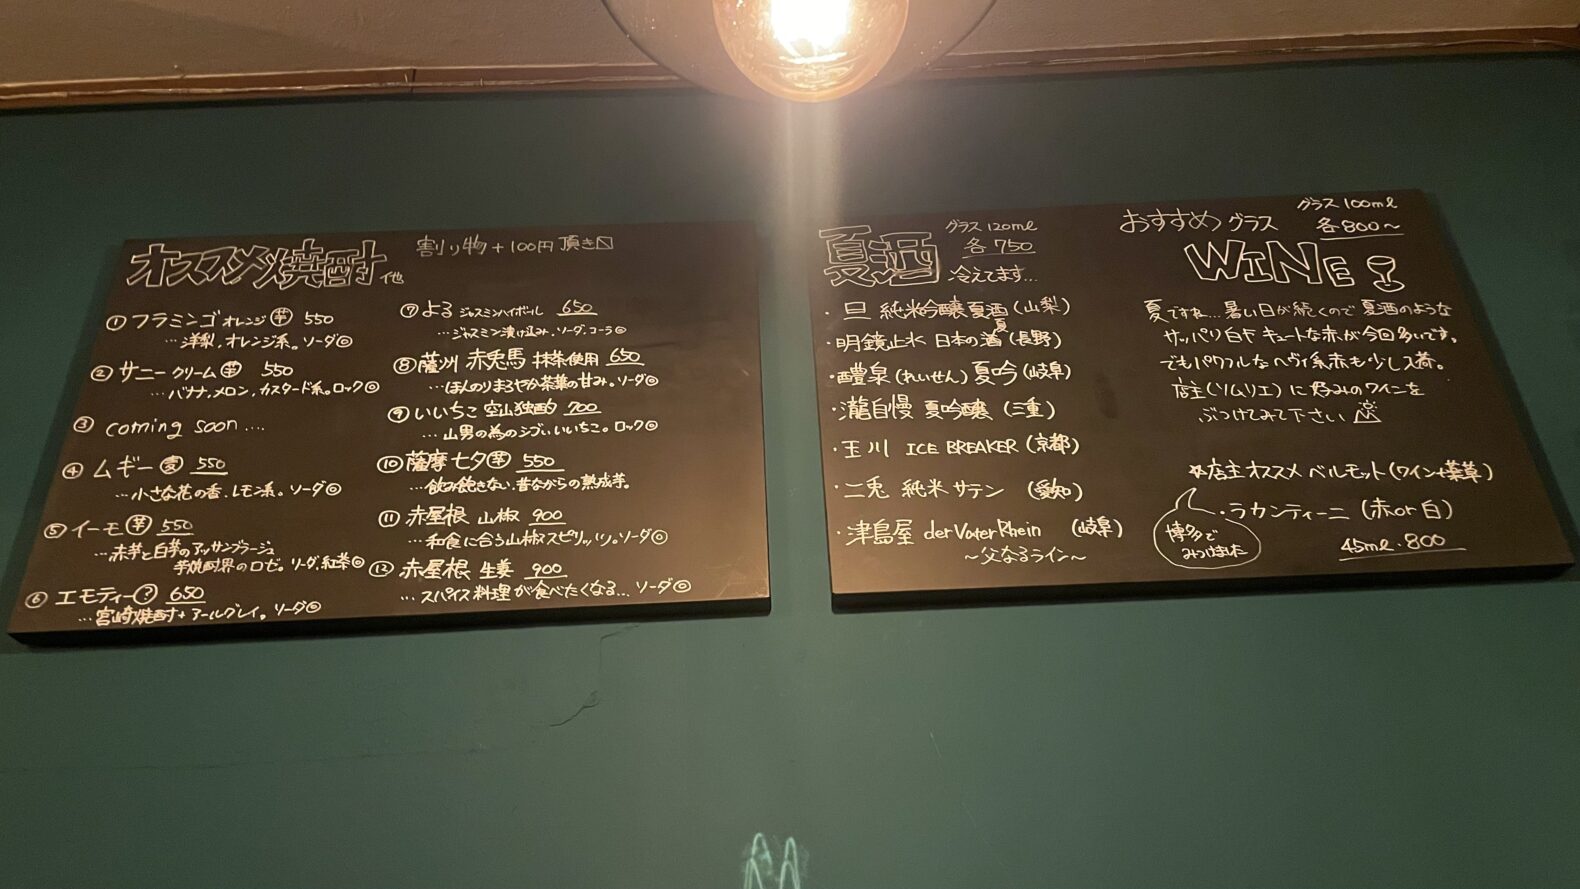 オススメ焼酎 他
割り物+100円 頂き〼
① フラミンゴ オレンジ ㊉芋 550
…洋梨、オレンジ系。ソーダ◎
② サニー クリーム 芋 550
…バナナ、メロン、カスタード系。ロック◎
③ coming soon…
④ ムギー 麦 550
…小さな花の香、レモン系。ソーダ◎
⑤ イーモ 芋 550
…赤芋と白芋のアッサンブラージュ
芋焼酎界のロゼ。ソーダ、紅茶◎
⑥ エモティー ? 650
…宮崎焼酎+アールグレイ。ソーダ◎
⑦ よる ジャスミンハイボール 650
…ジャスミン漬け込み。ソーダ、コーラ◎
⑧ 薩州 赤兎馬 抹茶使用 650
…ほんのりまろやか茶葉の甘み。ソーダ◎
⑨ いいちこ 空山独酌 700
…山男の為のシブいいいちこ。ロック◎
⑩ 薩摩七夕 芋 550
…飲み飽きない、昔ながらの熟成芋。
⑪ 赤屋根 山椒 900
…和食に合う山椒スピリッツ。ソーダ◎
⑫ 赤屋根 生姜 900
…スパイス料理が食べたくなる…ソーダ◎
夏酒
グラス120ml
各750
冷えてます…
・旦 純米吟醸 夏酒 (山梨)
・明鏡止水 日本の夏 (長野)
・醴泉(れいせん) 夏吟 (岐阜)
・瀧自慢 夏吟醸 (三重)
・玉川 ICE BREAKER (京都)
・二兎 純米 サテン (愛知)
・津島屋 der Vater Rhein (岐阜)
～父なるライン～
おすすめ グラス
WINE
グラス100ml
各800～
夏ですね…暑い日が続くので夏酒のような
サッパリ白や キュートな赤が今回多いです。
でもパワフルなヘヴィ系赤も少し入荷。
店主(ソムリエ)に好みのワインを
ぶつけてみて下さい
☆店主オススメ ベルモット(ワイン+薬草)
・ラカンティーニ (赤or白)
45ml・800
博多で
みつけました